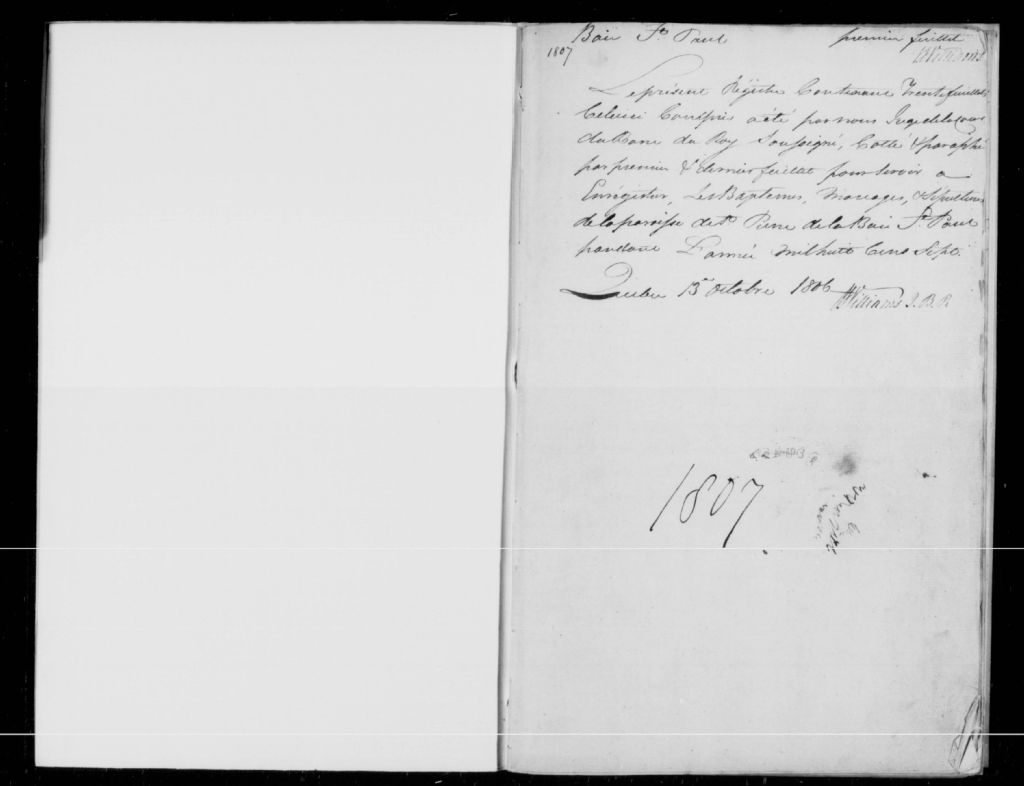 Baie St. Paul premier feuillet
1807 JWilliams
Le présent Régistre Contenant Trente feuillets
Celuici Compris a été par nous Juge de la Cour
du Banc du Roy Soussigné, Cotté & paraphé
par premier & dernier feuillet pour servir a
Enrégistrer, Les Baptemes, Mariages, & Sépultures
de la paroisse de St. Pierre de la Baie St. Paul
pendant L'année mil huit Cens Sept.
Quebec 15 Octobre 1806
JWilliams J. B. R.
1807